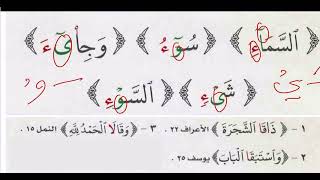 ﴿ ٱلسَّمَآءِ ﴾ ﴿ سُوٓءُ ﴾ ﴿ وَجِاْىٓءَ ﴾
﴿ شَىْءِ ﴾ ﴿ ٱلسَّوْءِ ﴾
١ - ﴿ ذَاقَا ٱلشَّجَرَةَ ﴾ الأعراف ٢٢ . ٣ - ﴿ وَقَالَا ٱلْحَمْدُ لِلَّهِ ﴾ النمل ١٥ .
٢ - ﴿ وَٱسْتَبَقَا ٱلْبَابَ ﴾ يوسف ٢٥ .